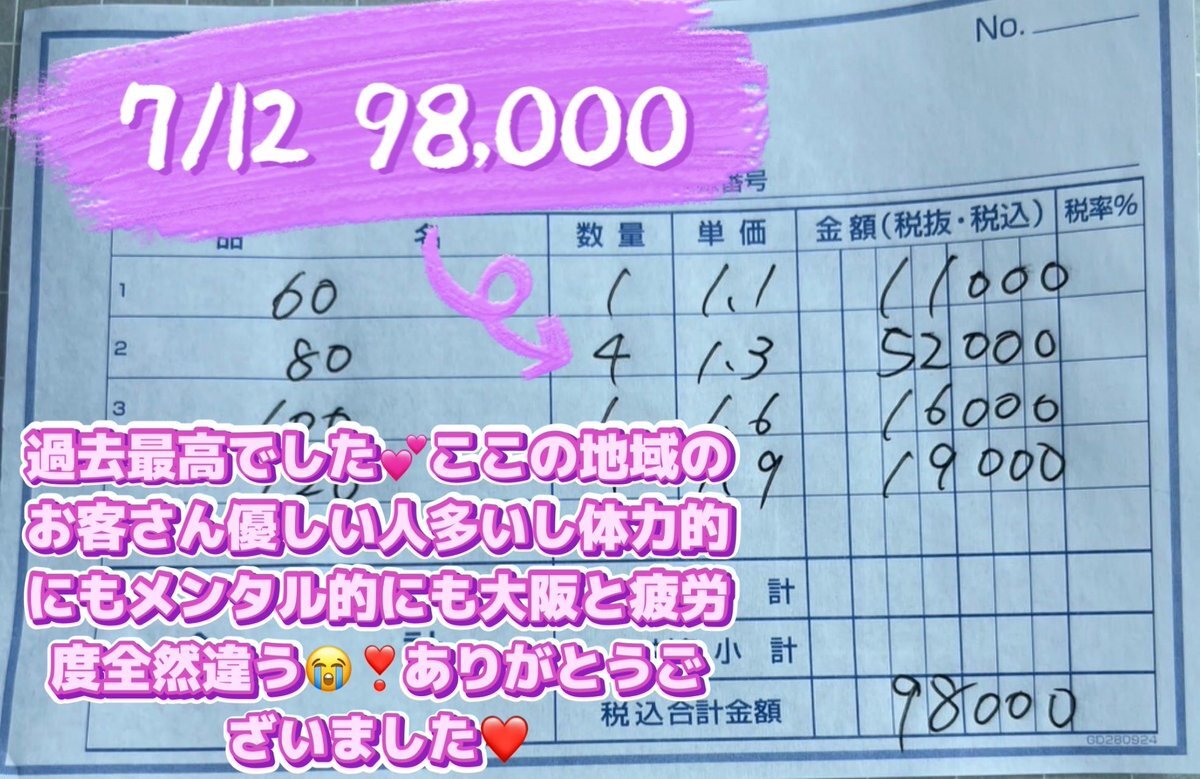 No.
7/12 98,000
番号
品 名 数量 単価 金額(税抜・税込) 税率%
1 60 1 1.1 11000
2 80 4 1.3 52000
3 100 1 1.6 16000
120 1 1.9 19000
過去最高でした💕ここの地域の
お客さん優しい人多いし体力的
にもメンタル的にも大阪と疲労
度全然違う😭❣️ありがとうご
ざいました❤️
計
小計
税込合計金額 98000
GD280924